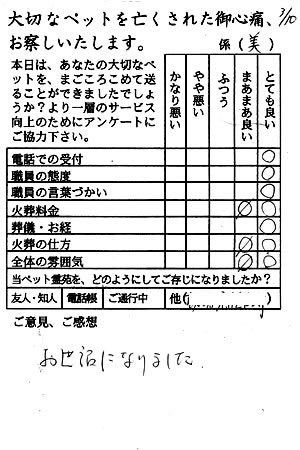 大切なペットを亡くされた御心痛、
お察しいたします。 係(美) 3/10
本日は、あなたの大切なペットを、まごころこめて送
ることができましたでしょうか?より一層のサービス
向上のためにアンケートにご協力下さい。
かなり悪い やや悪い ふつう まあまあ良い とても良い
電話での受付 ○
職員の態度 ○
職員の言葉づかい ○
火葬料金 ∅ ○
葬儀・お経 ○
火葬の仕方 ∅ ○
全体の雰囲気 ∅ ○
当ペット霊苑を、どのようにしてご存じになりましたか?
友人・知人 電話帳 ご通行中 他( )
ご意見、ご感想
お世話になりました